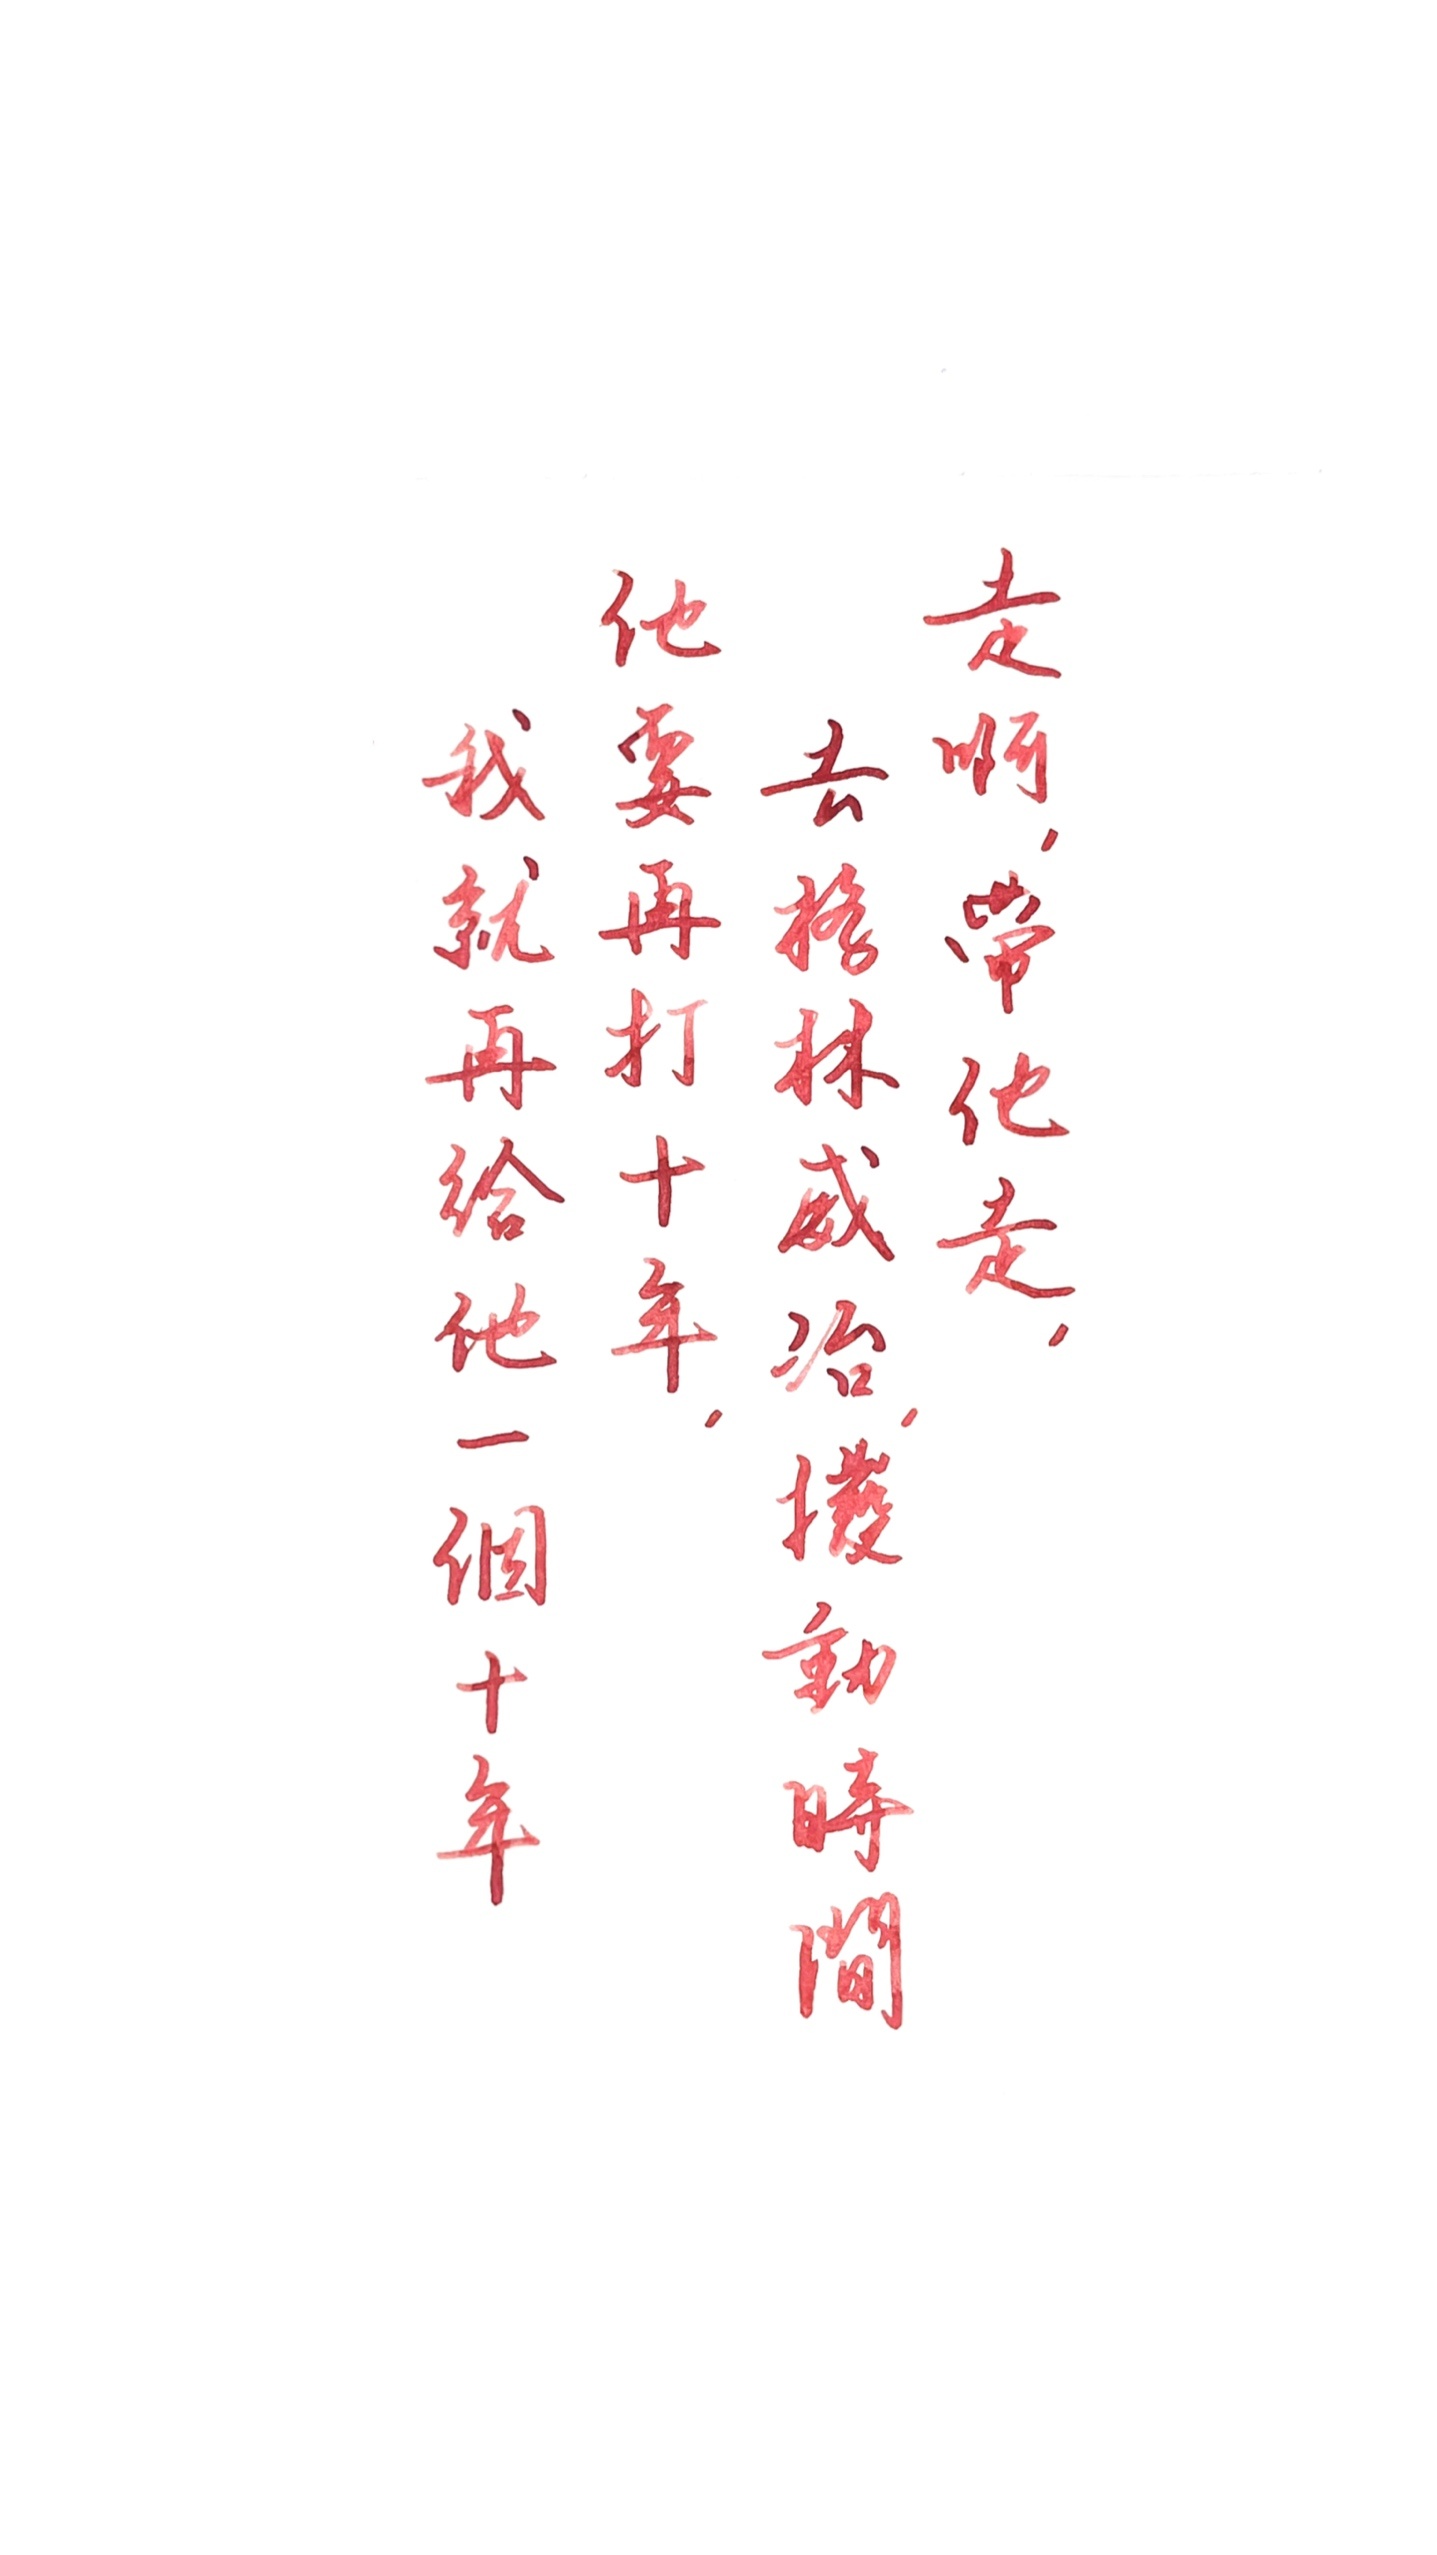 走啊，帶他走，
去格林威治，撥動時間
他要再打十年，
我就再給他一個十年